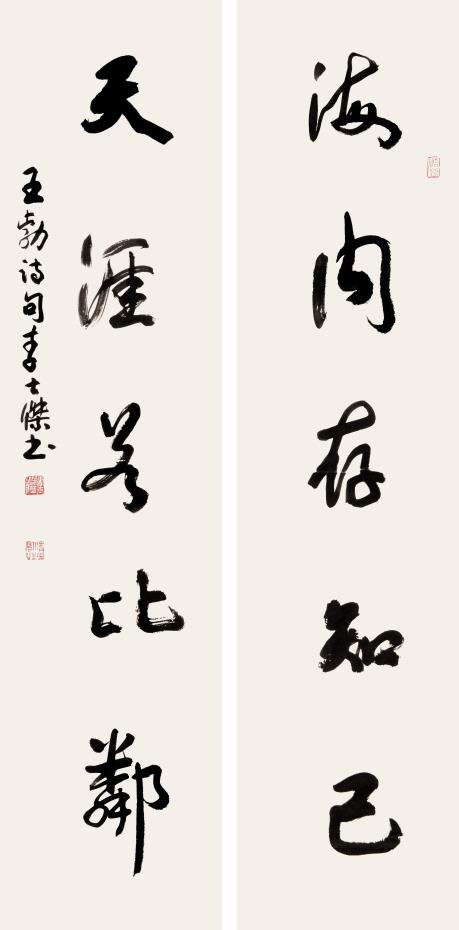 海内存知己
天涯若比鄰
王勃诗句李士傑书